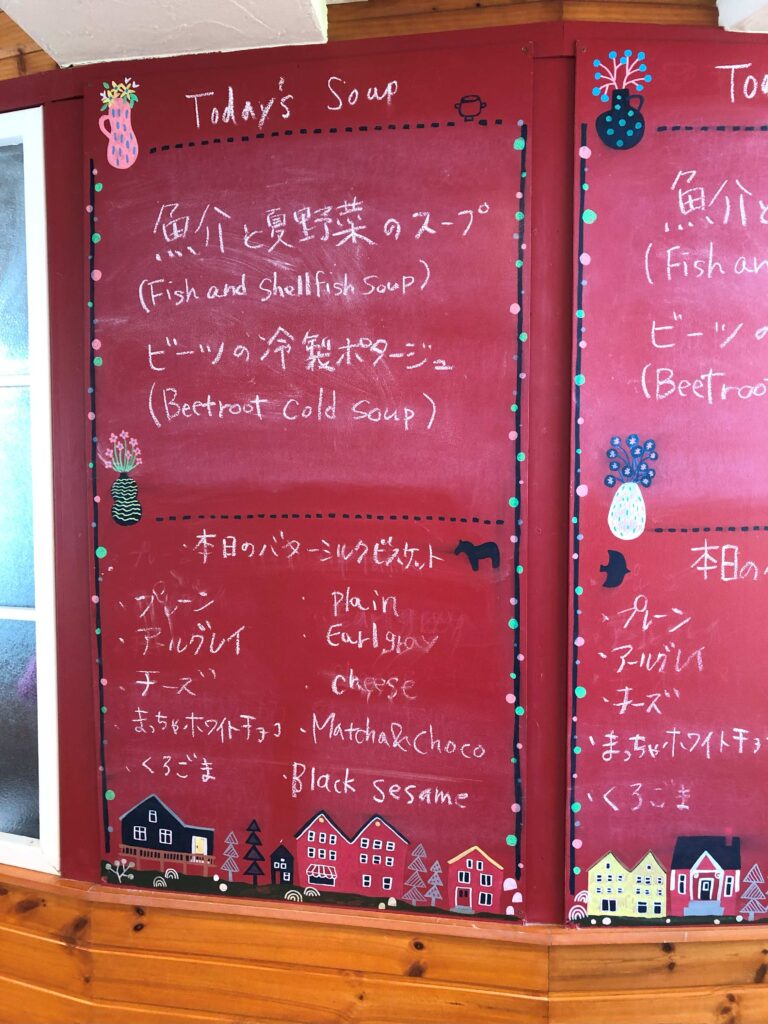 Today's Soup
魚介と夏野菜のスープ
(Fish and Shellfish Soup)
ビーツの冷製ポタージュ
(Beetroot Cold Soup)
・本日のバターミルクビスケット
・プレーン ・plain
・アールグレイ ・Earlgray
・チーズ ・cheese
・まっちゃホワイトチョコ ・Matcha&Choco
・くろごま ・Black Sesame
魚介と
(Fish an
ビーツの
(Beetroo
本日のバ
・プレーン
・アールグレイ
・チーズ
・まっちゃホワイトチョ
・くろごま